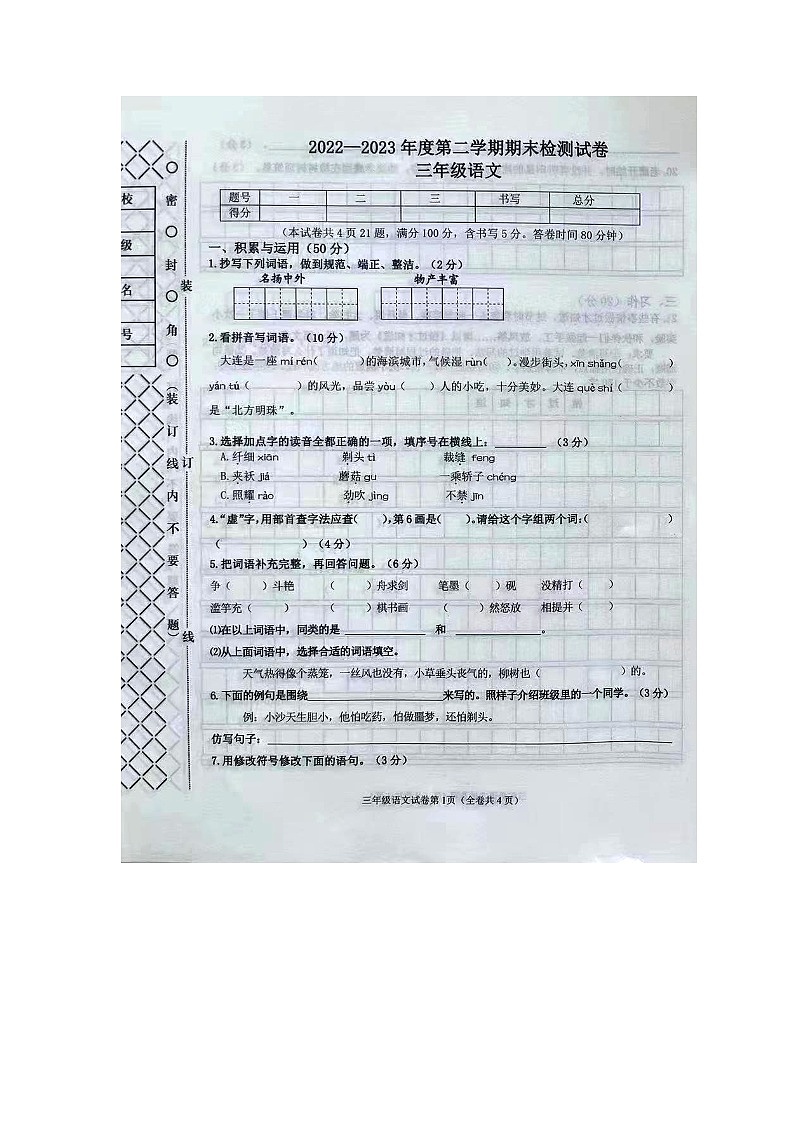 2022—2023 年度第二学期期末检测试卷
三年级语文
题号 一 二 三 书写 总分
得分
(本试卷共 4 页 21 题，满分 100 分，含书写 5 分。答卷时间 80 分钟)
一、积累与运用（50 分）
1.抄写下列词语，做到规范、端正、整洁。（2 分）
名扬中外 物产丰富
2.看拼音写词语。（10 分）
大连是一座 mí rén（ ）的海滨城市，气候湿 rùn（ ）。漫步街头，xīn shǎng（ ）
yán tú（ ）的风光，品尝 yòu（ ）人的小吃，十分美妙。大连 què shí（ ）
是“北方明珠”。
3.选择加点字的读音全都正确的一项，填序号在横线上：________（3 分）
A.纤细 xiān 剃头 tì 裁缝 feng
B.夹袄 jiá 蘑菇 gu 一乘轿子 chéng
C.照耀 rào 劲吹 jìng 不禁 jīn
4.“虚”字，用部首查字法应查（ ），第 6 画是（ ）。请给这个字组两个词：（ ）
（ ）（4 分）
5.把词语补充完整，再回答问题。（6 分）
争（ ）斗艳 （ ）舟求剑 笔墨（ ）砚 没精打（ ）
滥竽充（ ） （ ）棋书画 （ ）然怒放 相提并（ ）
⑴在以上词语中，同类的是 ____________ 和 ____________。
⑵从上面词语中，选择合适的词语填空。
天气热得像个蒸笼，一丝风也没有，小草垂头丧气的，柳树也（ ）的。
6.下面的例句是围绕____________________来写的。照样子介绍班级里的一个同学。（3 分）
例：小沙天生胆小，他怕吃药，怕做噩梦，还怕剃头。
仿写句子：____________________
7.用修改符号修改下面的语句。（3 分）
三年级语文试卷第 1页（全卷共 4 页）
校
级
名
号
密
封
角
（装
订
线
内
不
要
答
题）
装
订
线